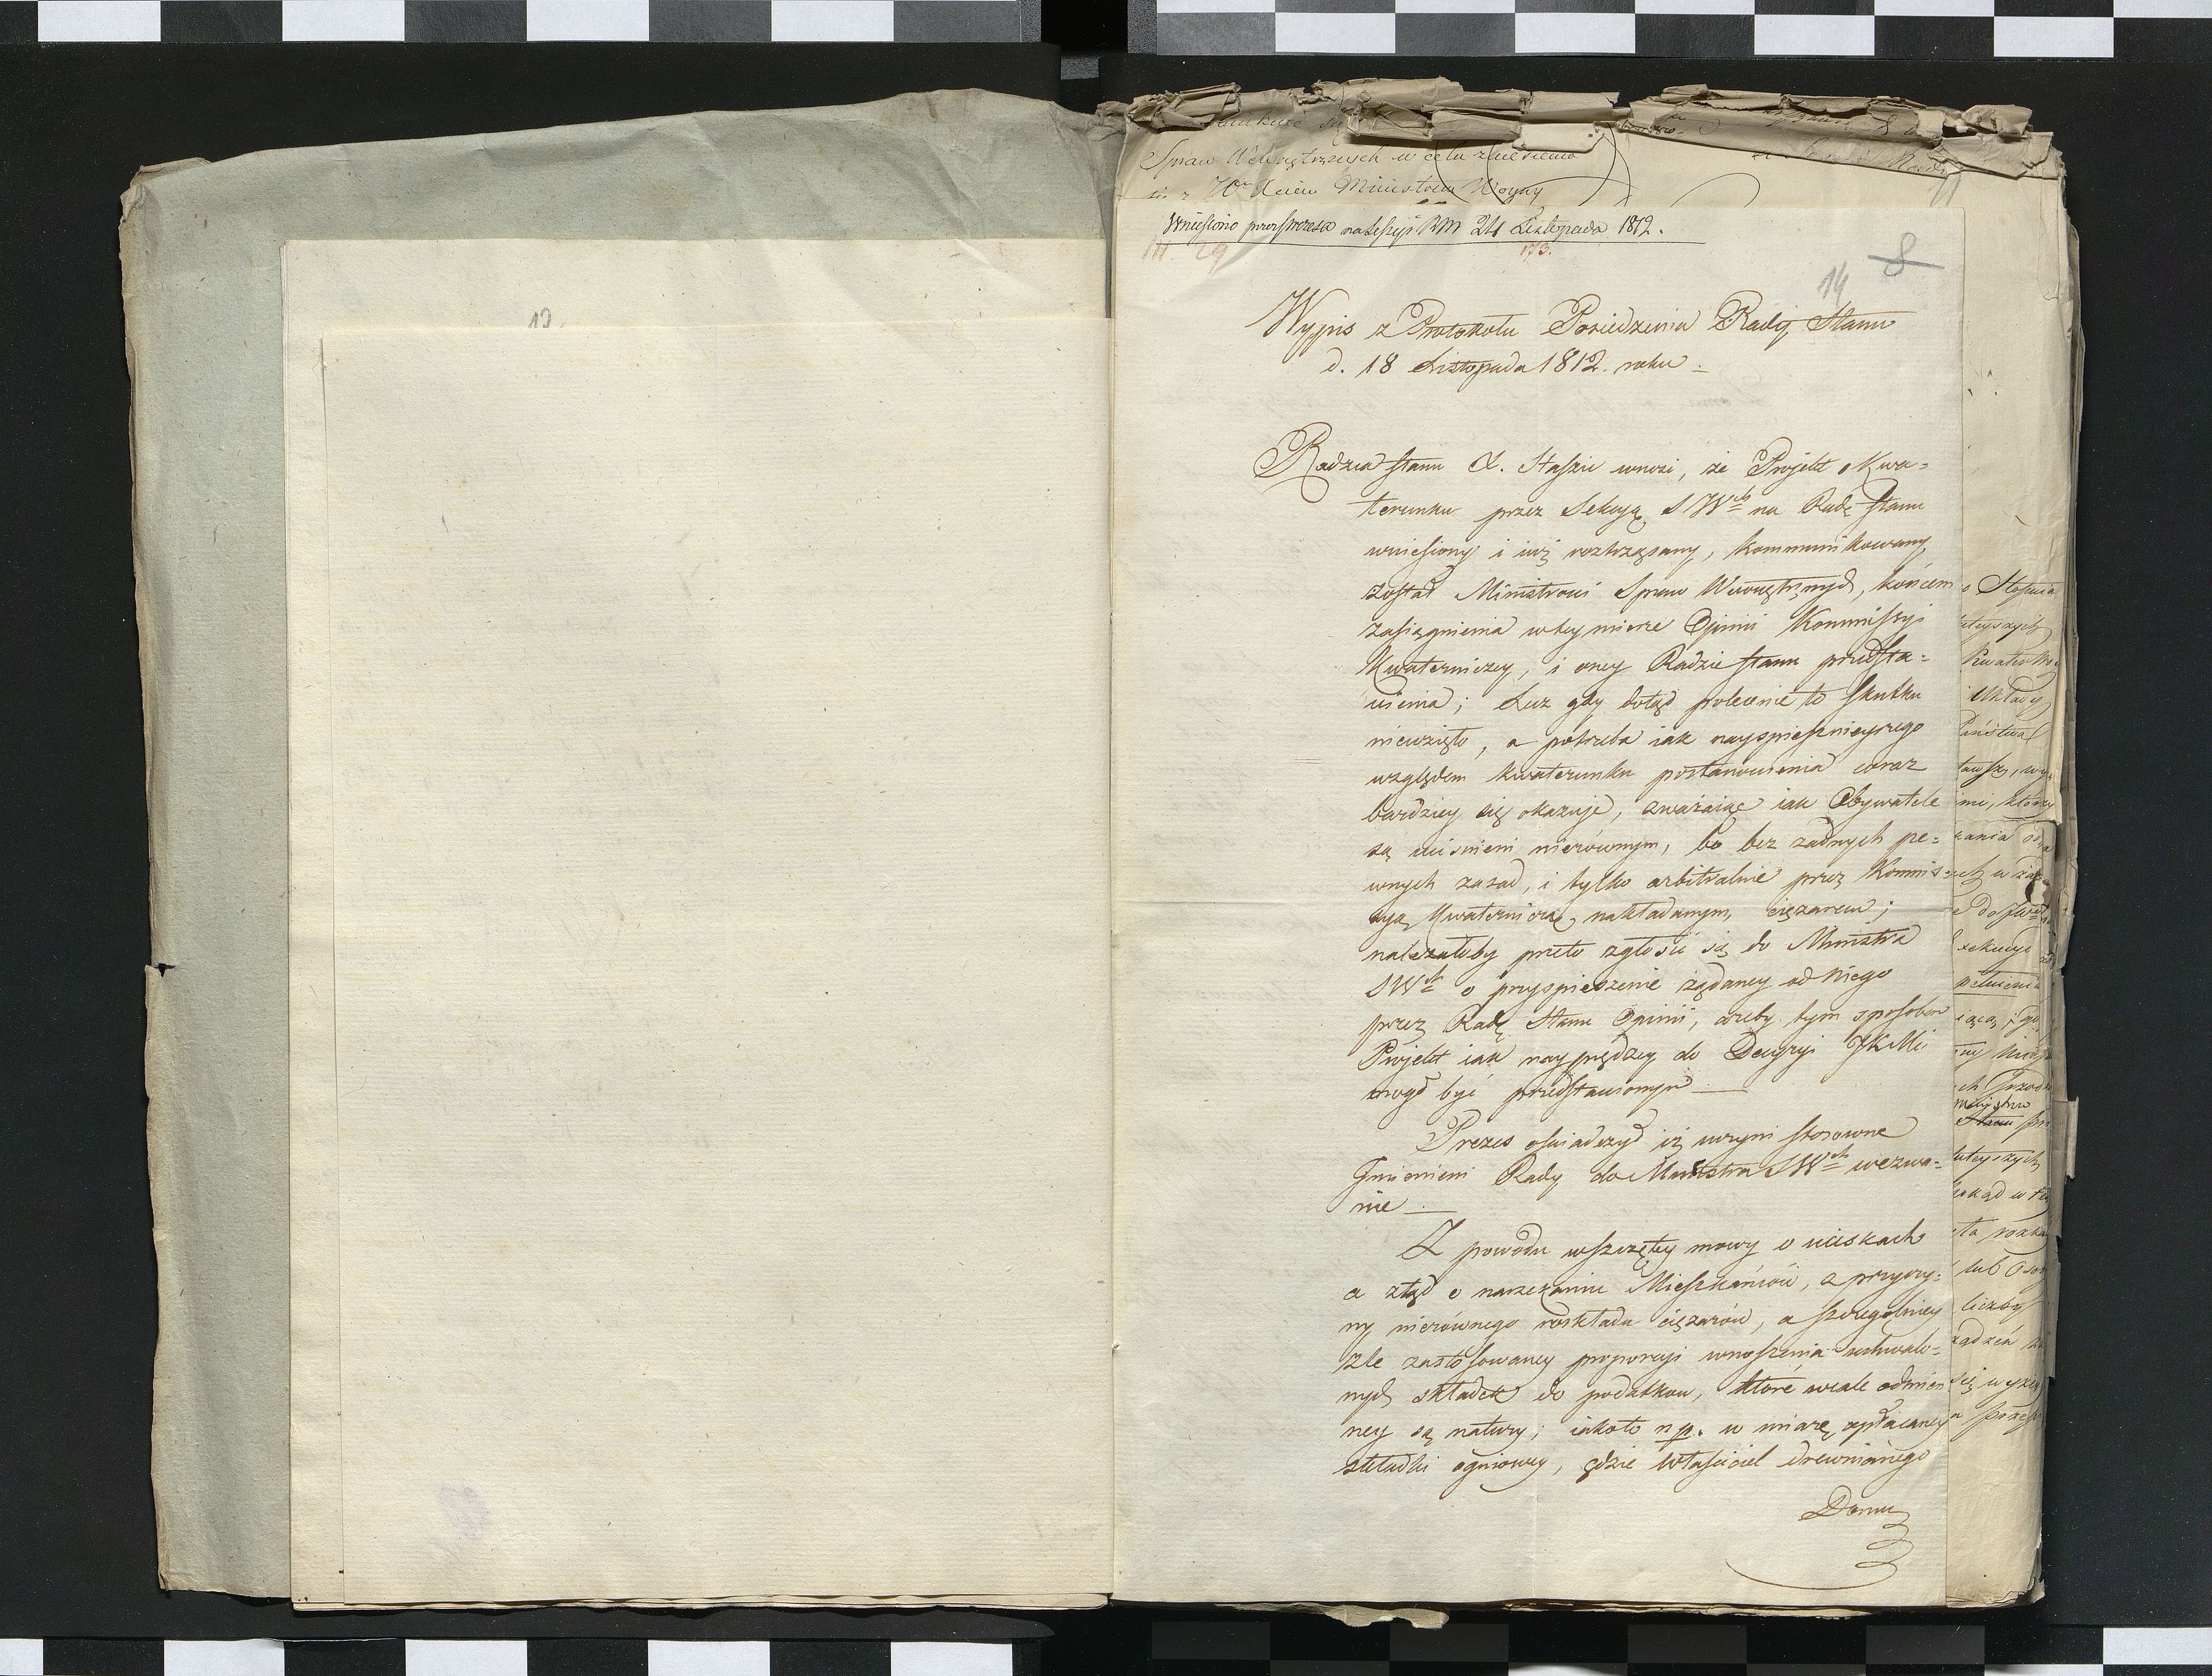 Spraw Wewnętrznych w celu zniesienia
Ministrem Woyny
Wniesiono przez Prezesa na Sessyi RM 24 Listopada 1812.
173.
14 8
12.
Wypis z Protokołu Posiedzenia Rady Stanu
d. 18 Listopada 1812. roku.
Radzca Stanu X. Staszic wnosi, że Projekt o Kwa-
terunku przez Sekcyą SWch na Radę Stanu
wniesiony i iuż roztrząsany, kommunikowany
został Ministrowi Spraw Wewnętrznych, końcem
zasiągnienia w tey mierze Opinii Kommissyi
Kwaterniczey, i oney Radzie Stanu przedsta-
wienia; Lecz gdy dotąd polecenie to skutku
niewzięło, a potrzeba iak nayspiesznieyszego
względem kwaterunku postanowienia coraz
bardziey się okazuje, zważaiąc iak Obywatele
są uciśnieni nierównym, bo bez żadnych pe-
wnych zasad, i tylko arbitralnie przez Kommis-
syą Kwaterniczą, nakładanym, ciężarem;
należałoby przeto zgłosić się do Ministra
SWch o przyspieszenie żądaney od niego
przez Radę Stanu Opinii, ażeby tym sposobem
Projekt iak nayprędzey do Decyzyi JKMci
mógł być przedstawionym.
Prezes oświadczył iż uczyni stosowne
Imieniem Rady do Ministra SWch wezwa-
nie.
Z powodu wszczętey mowy o uciskach
a ztąd o narzekaniu Mieszkańców, z przyczy-
ny nierównego rozkładu ciężarów, a szczególniey
źle zastosowaney proporcyi wnoszenia uchwalo-
nych składek do podatków, które wcale odmien-
ney są natury; iakoto np. w miarę opłacaney
składki ogniowey, gdzie właściciel drewnianego
Domu